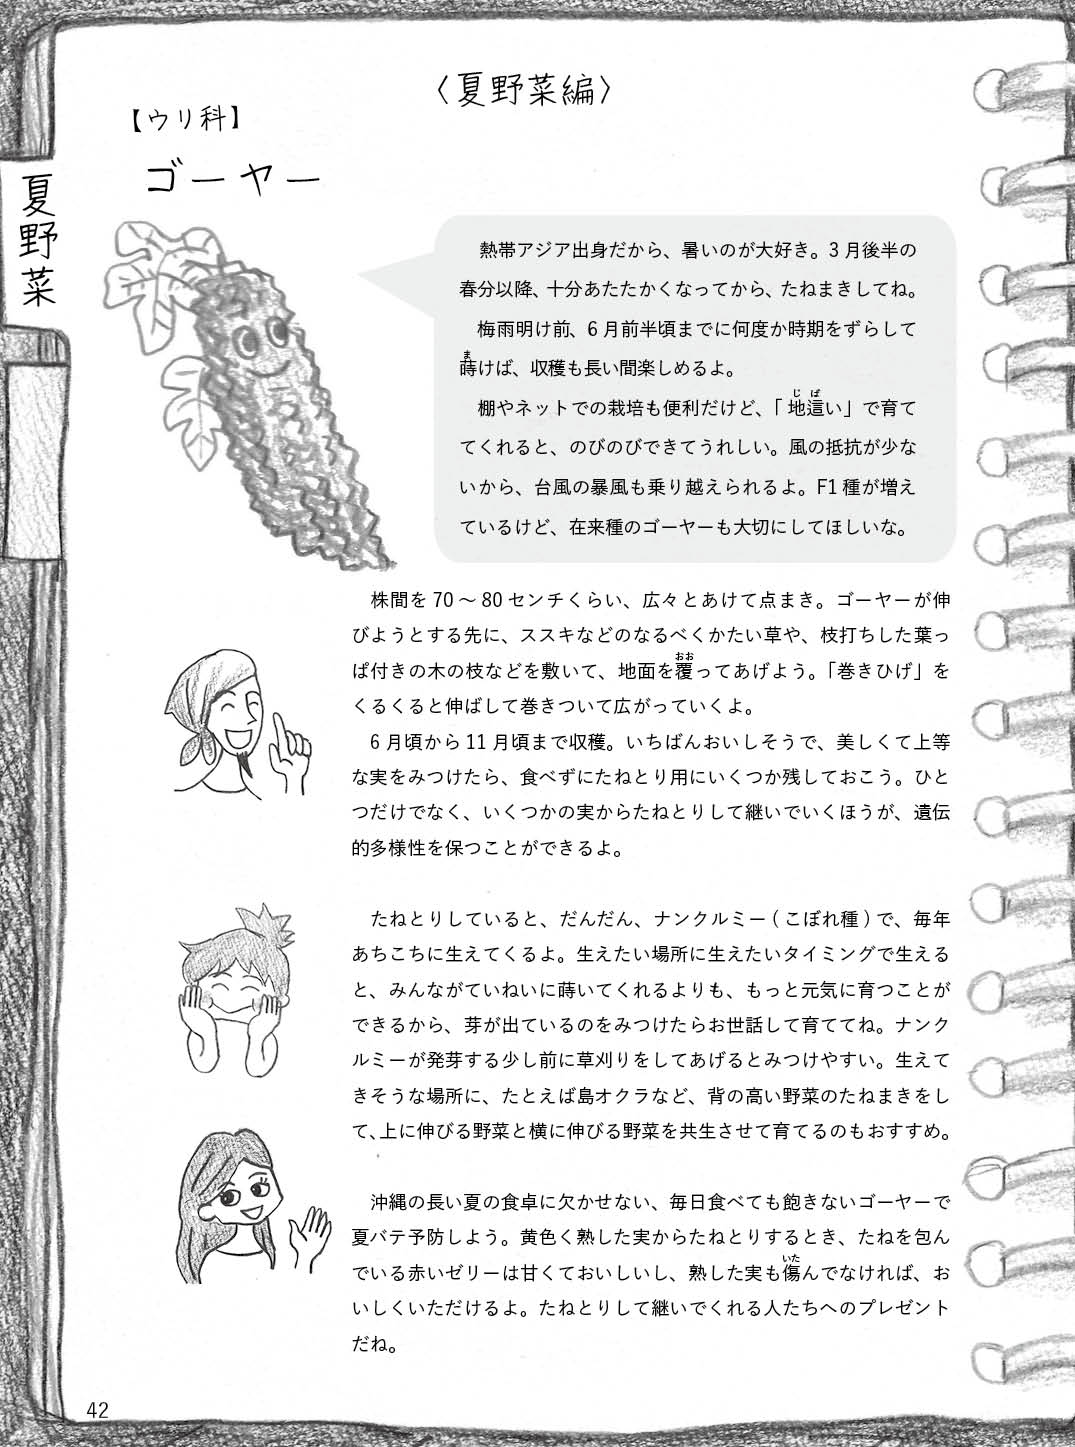 〈夏野菜編〉
【ウリ科】
ゴーヤー
夏野菜
熱帯アジア出身だから、暑いのが大好き。3月後半の
春分以降、十分あたたかくなってから、たねまきしてね。
梅雨明け前、6月前半頃までに何度か時期をずらして
蒔けば、収穫も長い間楽しめるよ。
棚やネットでの栽培も便利だけど、「地這い」で育て
てくれると、のびのびできてうれしい。風の抵抗が少な
いから、台風の暴風も乗り越えられるよ。F1種が増え
ているけど、在来種のゴーヤーも大切にしてほしいな。
株間を70〜80センチくらい、広々とあけて点まき。ゴーヤーが伸
びようとする先に、ススキなどのなるべくかたい草や、枝打ちした葉っ
ぱ付きの木の枝などを敷いて、地面を覆ってあげよう。「巻きひげ」を
くるくると伸ばして巻きついて広がっていくよ。
6月頃から11月頃まで収穫。いちばんおいしそうで、美しくて上等
な実をみつけたら、食べずにたねとり用にいくつか残しておこう。ひと
つだけでなく、いくつかの実からたねとりして継いでいくほうが、遺伝
的多様性を保つことができるよ。
たねとりしていると、だんだん、ナンクルミー(こぼれ種)で、毎年
あちこちに生えてくるよ。生えたい場所に生えたいタイミングで生える
と、みんながていねいに蒔いてくれるよりも、もっと元気に育つことが
できるから、芽が出ているのをみつけたらお世話して育ててね。ナンク
ルミーが発芽する少し前に草刈りをしてあげるとみつけやすい。生えて
きそうな場所に、たとえば島オクラなど、背の高い野菜のたねまきをし
て、上に伸びる野菜と横に伸びる野菜を共生させて育てるのもおすすめ。
沖縄の長い夏の食卓に欠かせない、毎日食べても飽きないゴーヤーで
夏バテ予防しよう。黄色く熟した実からたねとりするとき、たねを包ん
でいる赤いゼリーは甘くておいしいし、熟した実も傷んでなければ、お
いしくいただけるよ。たねとりして継いでくれる人たちへのプレゼント
だね。
42